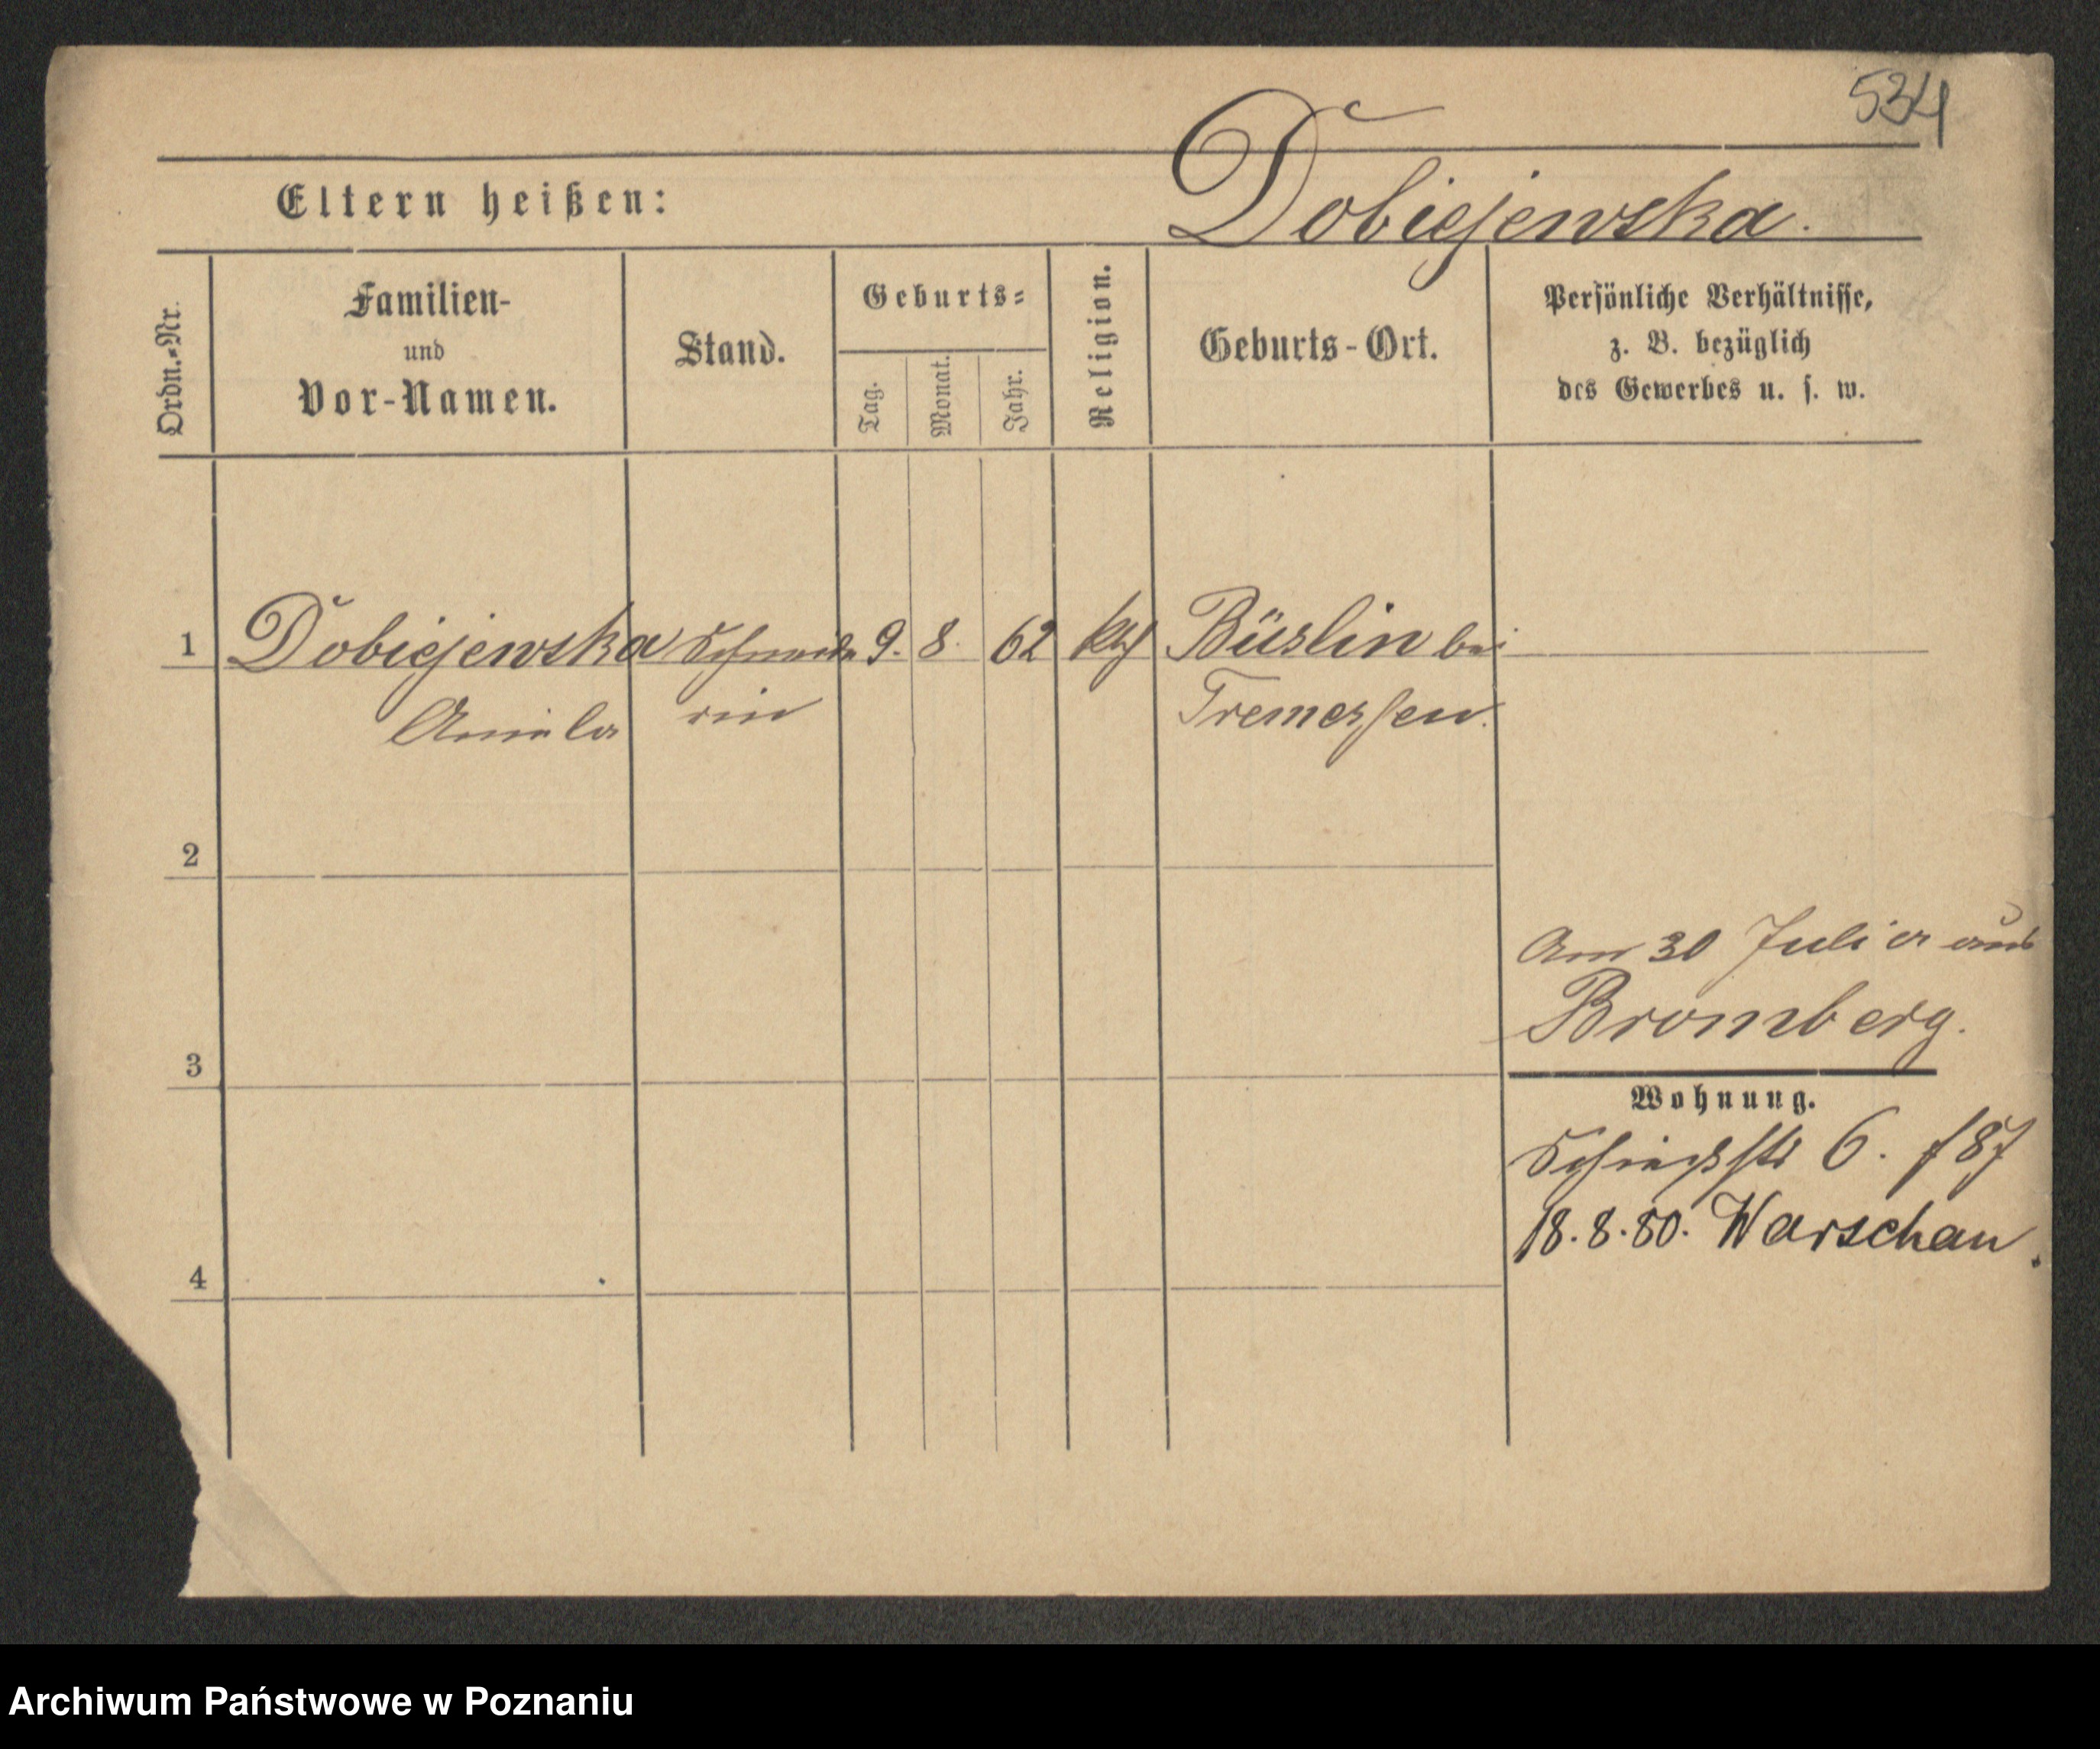 534
Eltern heißen:
Dobiejewska.
Ordn.-Nr.
Familien-
und
Vor-Namen.
Stand.
Geburts-
Tag.
Monat.
Jahr.
Religion.
Geburts-Ort.
Persönliche Verhältnisse,
z. B. bezüglich
des Gewerbes u. s. w.
1 Dobiejewska Schneide 9. 8. 62 kth Büslin bei
Aniela rin Tremessen.
2
3
4
Am 30 Juli cr aus
Bromberg.
Wohnung.
6.
18.8.80. Warschau.
Archiwum Państwowe w Poznaniu